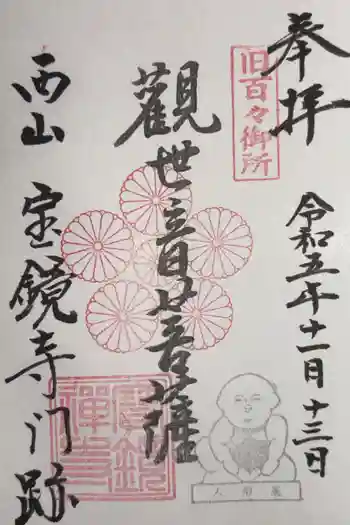 奉拝
旧百々御所
令和五年十一月十三日
觀世音菩薩
西山 宝鏡寺门跡
寶鏡禅寺
人形展